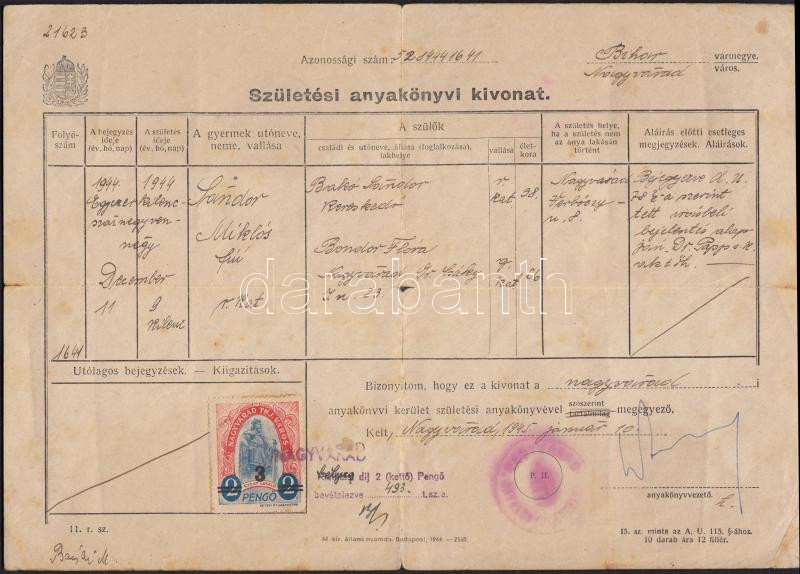 21623
Azonossági szám 5281944 1641
Bihar vármegye.
Nagyvárad város.
Születési anyakönyvi kivonat.
Folyó-
szám
A bejegyzés
ideje
(év, hó, nap)
A születés
ideje
(év, hó, nap)
A gyermek utóneve,
neme, vallása
A szülők
családi és utóneve, állása (foglalkozása),
lakhelye
vallása
élet-
kora
A születés helye,
ha a születés nem
az anya lakásán
történt
Aláírás előtti esetleges
megjegyzések. Aláírások.
1641
1944
Egyezer
kilenc-
száznegyven-
négy
December
11
1944
9
kilenc
Sándor
Miklós
fiú
r. kat
Bakó Sándor
kereskedő
r.
kat
38.
Bondor Flóra
Nagyvárad Gr. Csáky
I u. 23.
g.
kat
26
Nagyvárad
Verbőczy
u. 8.
Bejegyezve A. U.
78 §-a szerint
tett
bejelentés alap-
ján. Dr. Papp
darabanth
Utólagos bejegyzések. — Kiigazítások.
Bizonyítom, hogy ez a kivonat a nagyváradi
anyakönyvi kerület születési anyakönyvével szószerint megegyező.
tartalmilag
Kelt, Nagyvárad, 1945. január 10.
NAGYVÁRAD THJ. VÁROS
3
2 2
SZENT LÁSZLÓ
PENGŐ
NAGYVÁRAD
díj 2 (kettő) Pengő
bevételezve 493. t.sz.a.
P. H.
anyakönyvvezető.
11. r. sz.
M. kir. állami nyomda. Budapest, 1944. — 2540.
15. sz. minta az A. U. 115. §-ához.
10 darab ára 12 fillér.